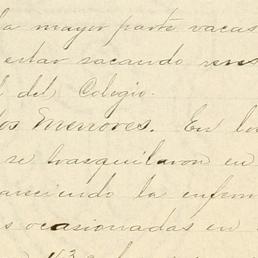 la mayor parte vacas
estar sacando
l del Colegio.
os Menores. En lo
se trasquilaron en
areciendo la enfer
s ocasionadas en